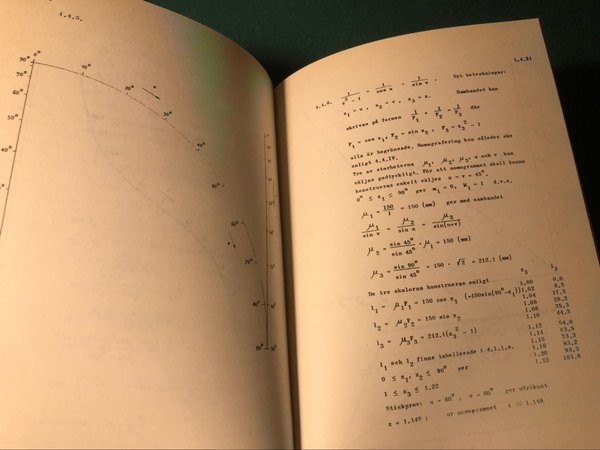 4.4.5.
90° 0°
70°
60°
50°
40°
10°
20°
30°
40°
50°
60°
90°
4.4.21
4.4.6. 1/(z² - 1) = 1/cos u + 1/sin v. Nya beteckningar:
z₁ = u, z₂ = v, z₃ = z. Sambandet kan
skrivas på formen 1/F₁ + 1/F₂ = 1/F₃ där
F₁ = cos z₁, F₂ = sin z₂, F₃ = z₃² - 1
alla är begränsade. Nomografering kan således ske
enligt 4.4.IV.
Tre av storheterna μ₁, μ₂, μ₃, u och v kan
väljas godtyckligt. För att nomogrammet skall kunna
konstrueras enkelt väljes u = v = 45°.
0° ≤ z₁ ≤ 90° ger m₁ = 0, M₁ = 1 d.v.s.
μ₁ = 150/1 = 150 (mm) ger med sambandet
μ₁/sin v = μ₂/sin u = μ₃/sin(u+v)
μ₂ = sin 45°/sin 45° · μ₁ = 150 (mm)
μ₃ = sin 90°/sin 45° · 150 = 150 · √2 = 212,1 (mm)
De tre skalorna konstrueras enligt
l₁ = μ₁F₁ = 150 cos z₁ (=150sin(90°-z₁))
l₂ = μ₂F₂ = 150 sin z₂
l₃ = μ₃F₃ = 212,1(z₃² - 1)
l₁ och l₂ finns tabellerade i 4.1.1.a.
0 ≤ z₁, z₂ ≤ 90° ger
1 ≤ z₃ ≤ 1,22
z₃ l₃
1,00
1,02 8,5
1,04 17,3
1,06 26,2
1,08 35,3
1,10 44,5
1,12 54,0
1,14 63,5
1,16 73,3
1,18 83,2
1,20 93,3
103,6
Stickprov: u = 60°, v = 60° ger uträknat
z = 1,148; ur nomogrammet z ≈ 1,148